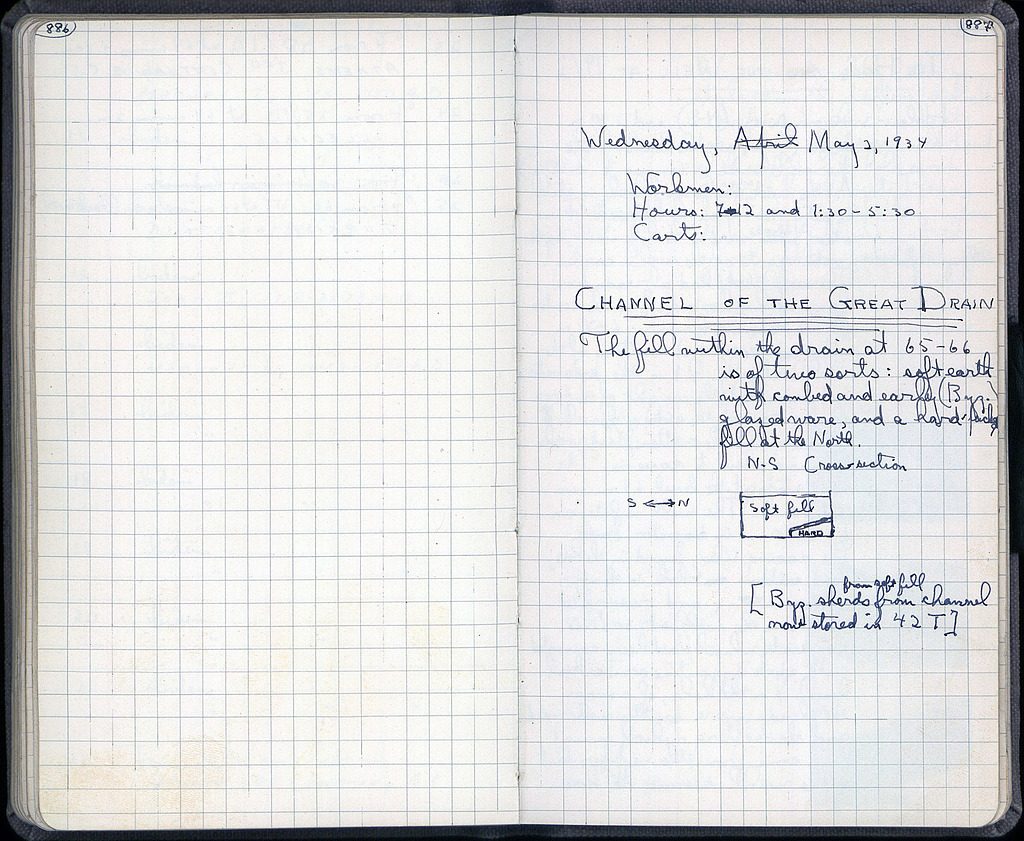 886
887
Wednesday, April May 2, 1934
Workmen:
Hours: 7-12 and 1:30-5:30
Carts:
CHANNEL OF THE GREAT DRAIN
The fill within the drain at 65-66
is of two sorts: soft earth
with combed and early (Byz.)
glazed ware, and a hard-packed
fill at the North.
N-S Cross-section
S ↔ N
Soft fill
HARD
from soft fill
[Byz. sherds from channel
now stored in 42 T]